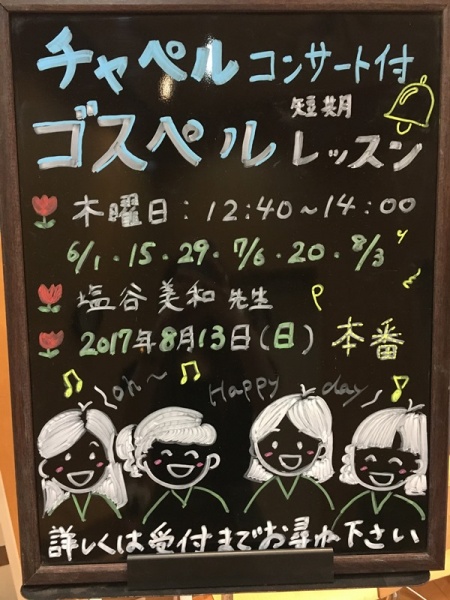 チャペルコンサート付
ゴスペル短期レッスン
木曜日:12:40~14:00
6/1・15・29・7/6・20・8/3
塩谷美和先生
2017年8月13日(日) 本番
oh~ Happy day
詳しくは受付までお尋ね下さい